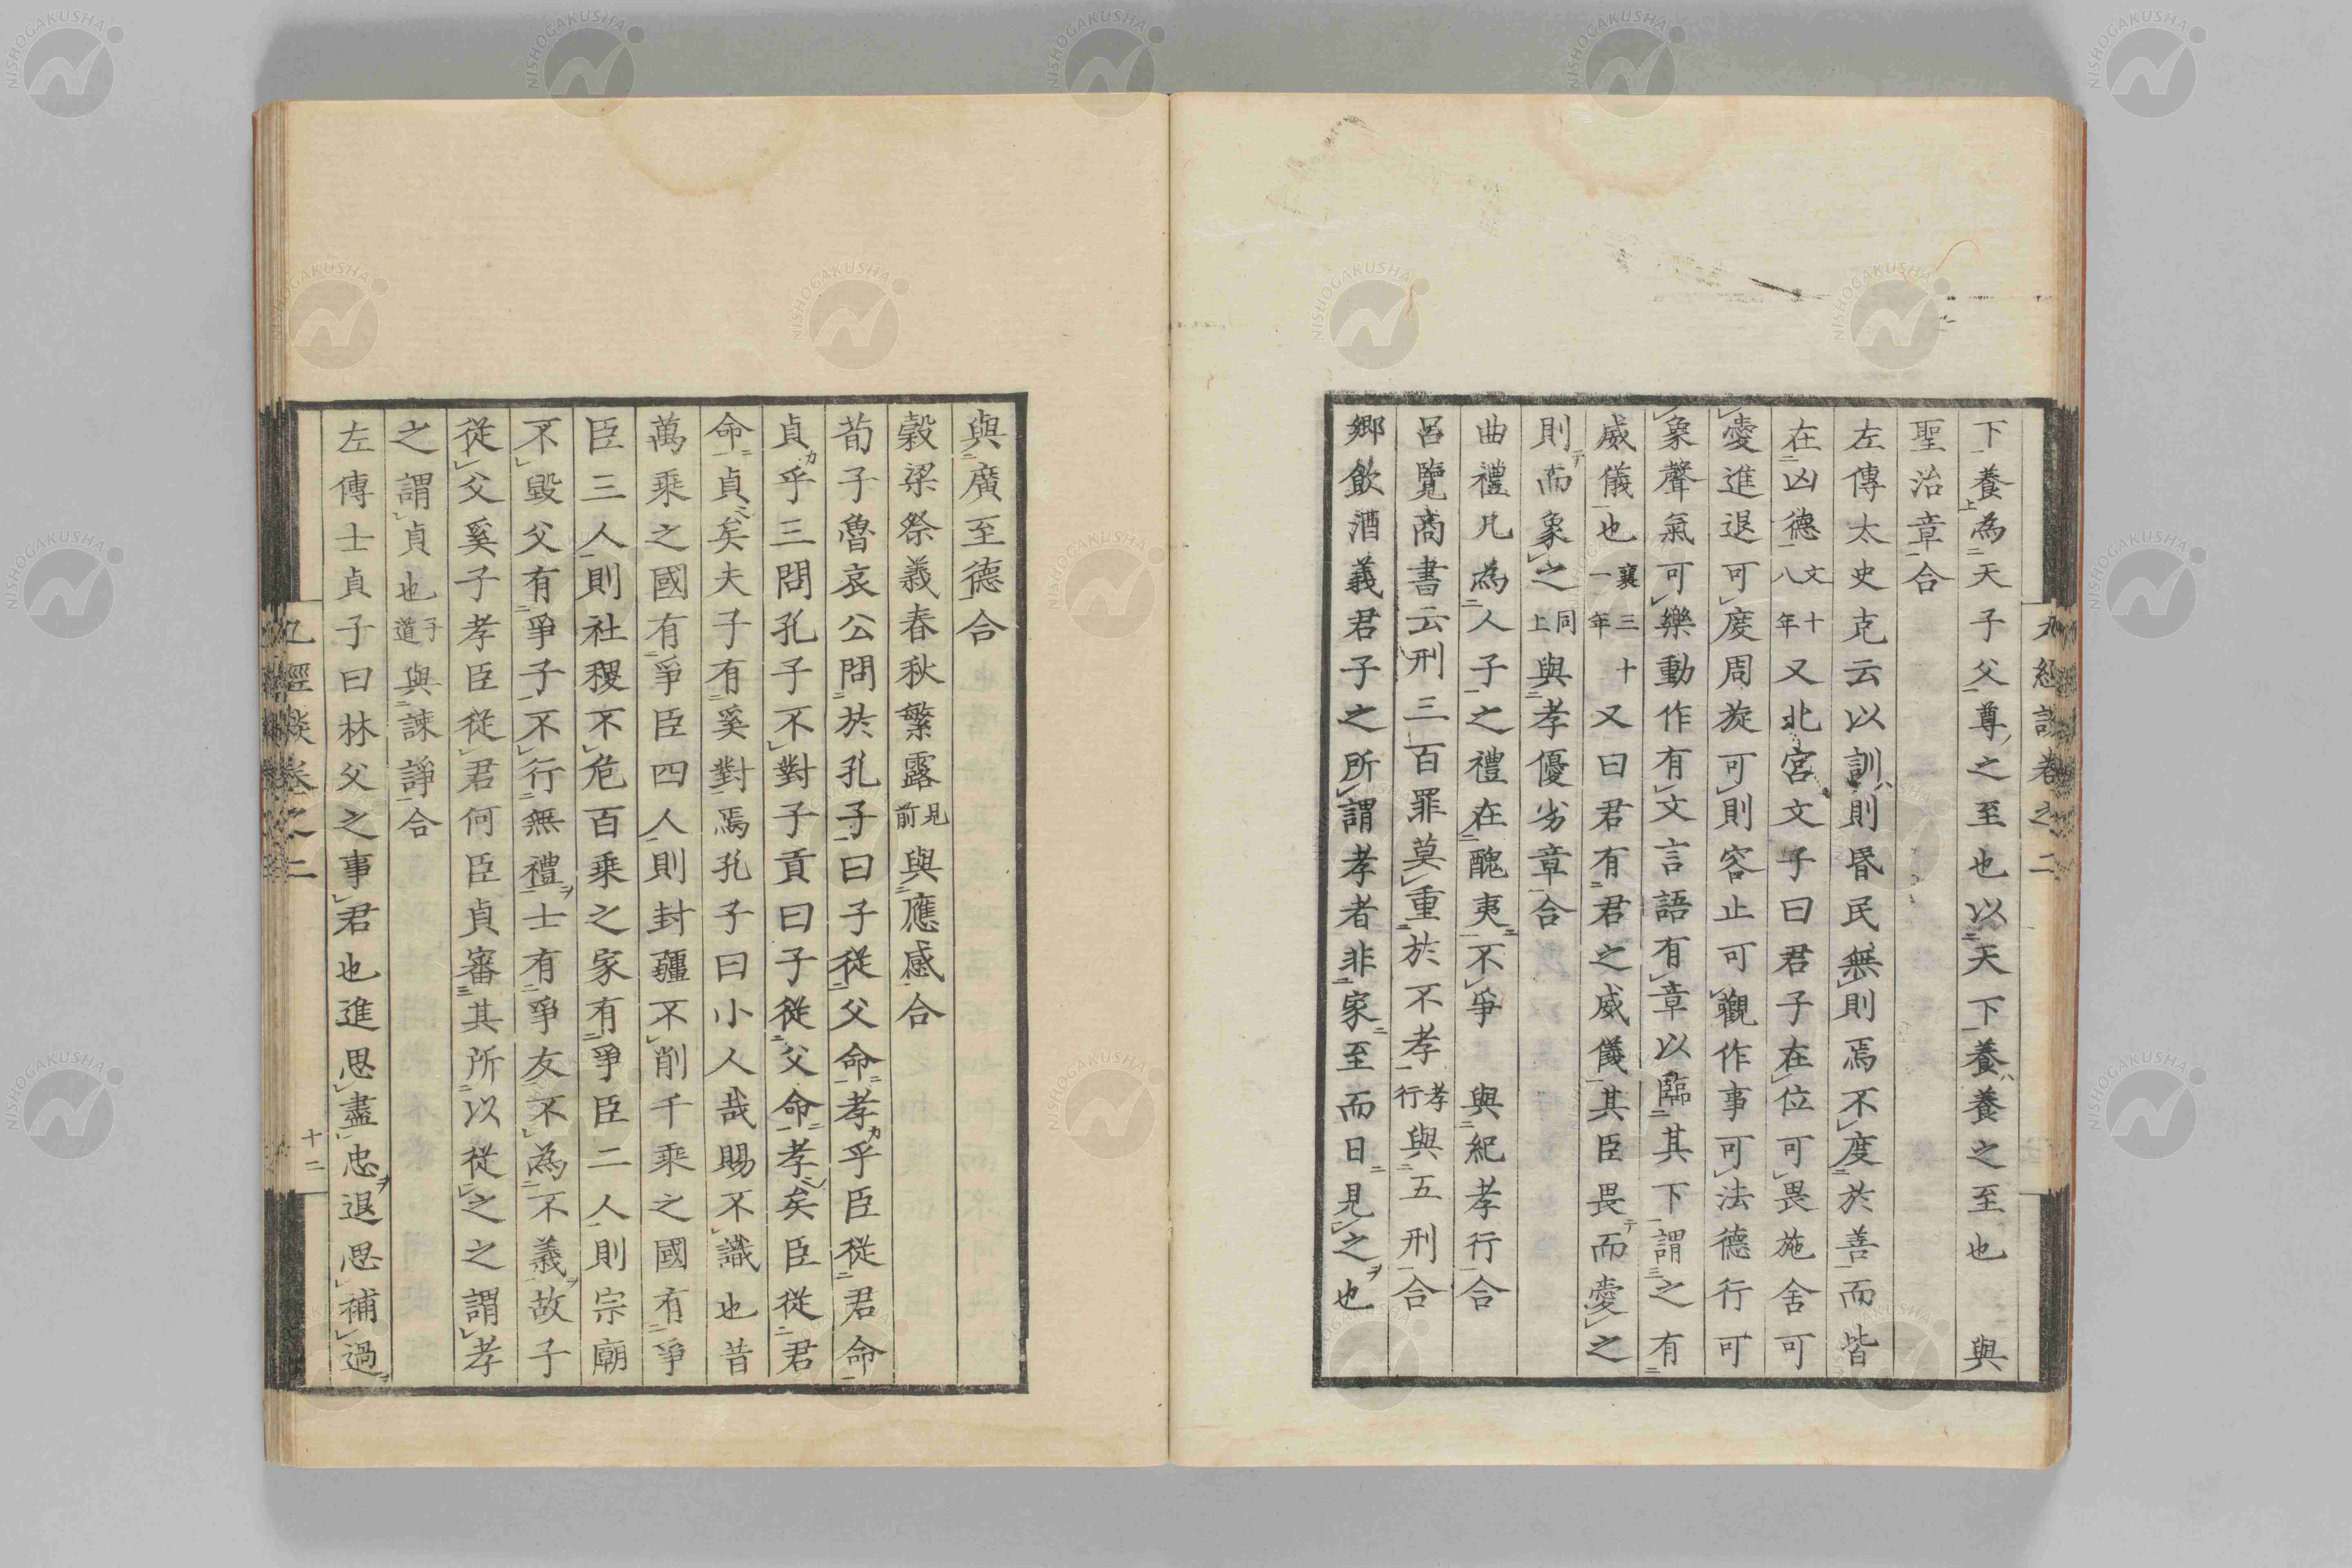 下養為天子父尊之至也以天下養養之至也　與
聖治章合
左傳太史克云以訓則昬民無則焉不度於善而皆
在凶德文十八年又北宮文子曰君子在位可畏施舍可
愛進退可度周旋可則容止可觀作事可法德行可
象聲氣可樂動作有文言語有章以臨其下謂之有
威儀也襄三十一年又曰君有君之威儀其臣畏而愛之
則而象之同上與孝優劣章合
曲禮凡為人子之禮在醜夷不爭　與紀孝行合
呂覽商書云刑三百罪莫重於不孝孝行與五刑合
鄉飲酒義君子之所謂孝者非家至而日見之也
與廣至德合
穀梁祭義春秋繁露見前與應感合
荀子魯哀公問於孔子曰子從父命孝乎臣從君命
貞乎三問孔子不對子貢曰子從父命孝矣臣從君
命貞矣夫子有奚對焉孔子曰小人哉賜不識也昔
萬乘之國有爭臣四人則封疆不削千乘之國有爭
臣三人則社稷不危百乘之家有爭臣二人則宗廟
不毀父有爭子不行無禮士有爭友不為不義故子
從父奚子孝臣從君何臣貞審其所以從之之謂孝
之謂貞也子道與諫諍合
左傳士貞子曰林父之事君也進思盡忠退思補過
九經談卷之二
十二
NISHOGAKUSHA